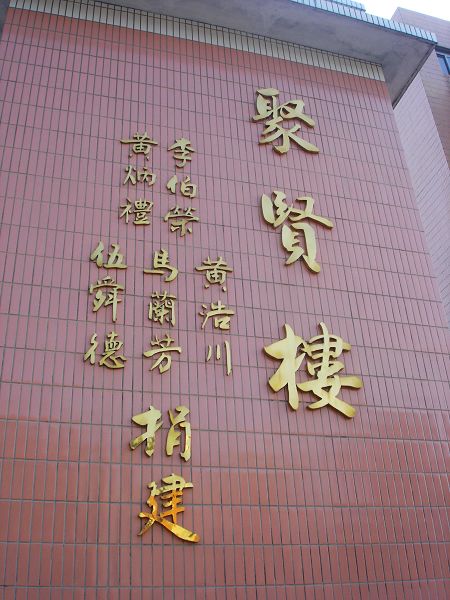 聚賢樓
李伯榮
黃炳禮
黃浩川
馬蘭芳
伍舜德
捐建